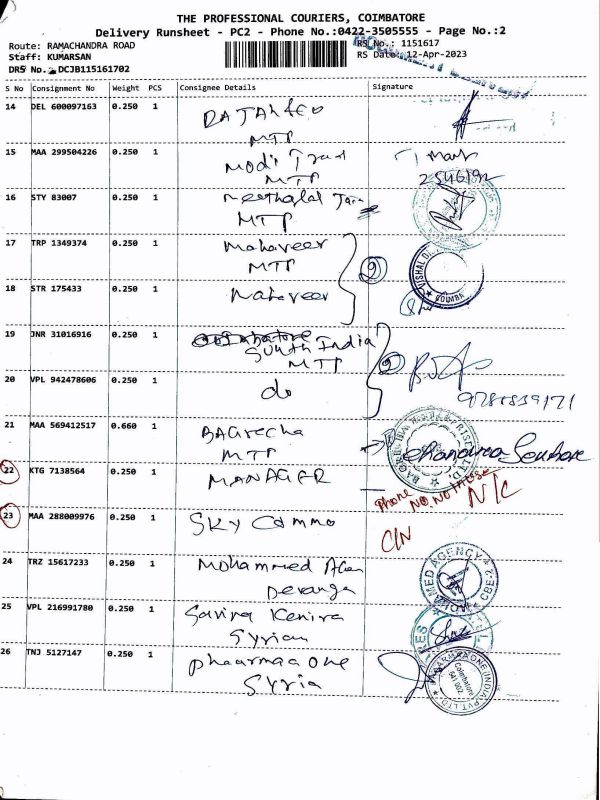 THE PROFESSIONAL COURIERS, COIMBATORE
Delivery Runsheet - PC2 - Phone No.:0422-3505555 - Page No.:2
Route: RAMACHANDRA ROAD
RS No.: 1151617
Staff: KUMARSAN
RS Date: 12-Apr-2023
DRS No. DCJB115161702
S No Consignment No Weight PCS Consignee Details Signature
14 DEL 600097163 0.250 1
MTP
15 MAA 299504226 0.250 1 Modi
MTP
2546192
16 STY 83007 0.250 1
MTP
17 TRP 1349374 0.250 1 Mahaveer
MTP
2
VISHAL
COIMBA
18 STR 175433 0.250 1 Mahaveer
19 JNR 31016916 0.250 1
South India
MTP
2
20 VPL 942478606 0.250 1 do
21 MAA 569412517 0.660 1 BAGrecha
MTP
22 KTG 7138564 0.250 1 MANAGER
Phone No. N/C
23 MAA 288009976 0.250 1 Sky Commo
C/N
24 TRZ 15617233 0.250 1 Mohammed
MED AGENCY
CBE
25 VPL 216991780 0.250 1
Syrian
26 TNJ 5127147 0.250 1 pharmaa one
Syria
PHARMA ONE INDIA PVT. LTD.
Coimbatore